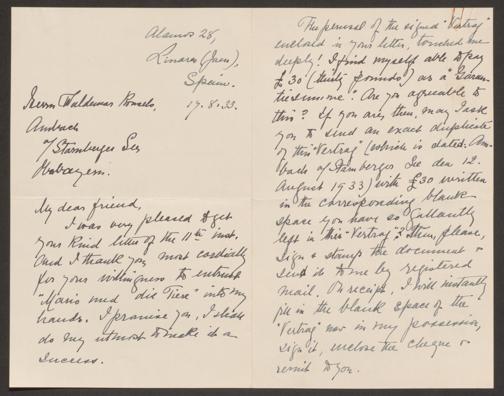 Alamos 28,
Linares (Jaen),
Spain.
Herrn Waldemar Bonsels,
17.8.33.
Ambach
a/Starnberger See
Oberbayern.
My dear friend,
I was very pleased to get
your kind letter of the 11th inst.
and I thank you most cordially
for your willingness to entrust
"Mario und die Tiere" into my
hands. I promise you, I shall
do my utmost to make it a
success.
The perusal of the signed "Vertrag"
enclosed in your letter, touched me
deeply! I find myself able to pay
£30 (thirty pounds) as a "Garan-
tiesumme". Are you agreeable to
this? If you are, then, may I ask
you to send an exact duplicate
of this "Vertrag" (which is dated: Am-
bach a/Starnberger See den 12.
August 1933) with £30 written
in the corresponding blank
space you have so gallantly
left in this "Vertrag"? Then, please,
sign & stamp the document &
send it to me by registered
mail. On receipt, I will instantly
fill in the blank space of the
"Vertrag" now in my possession,
sign it, enclose the cheque &
remit to you.